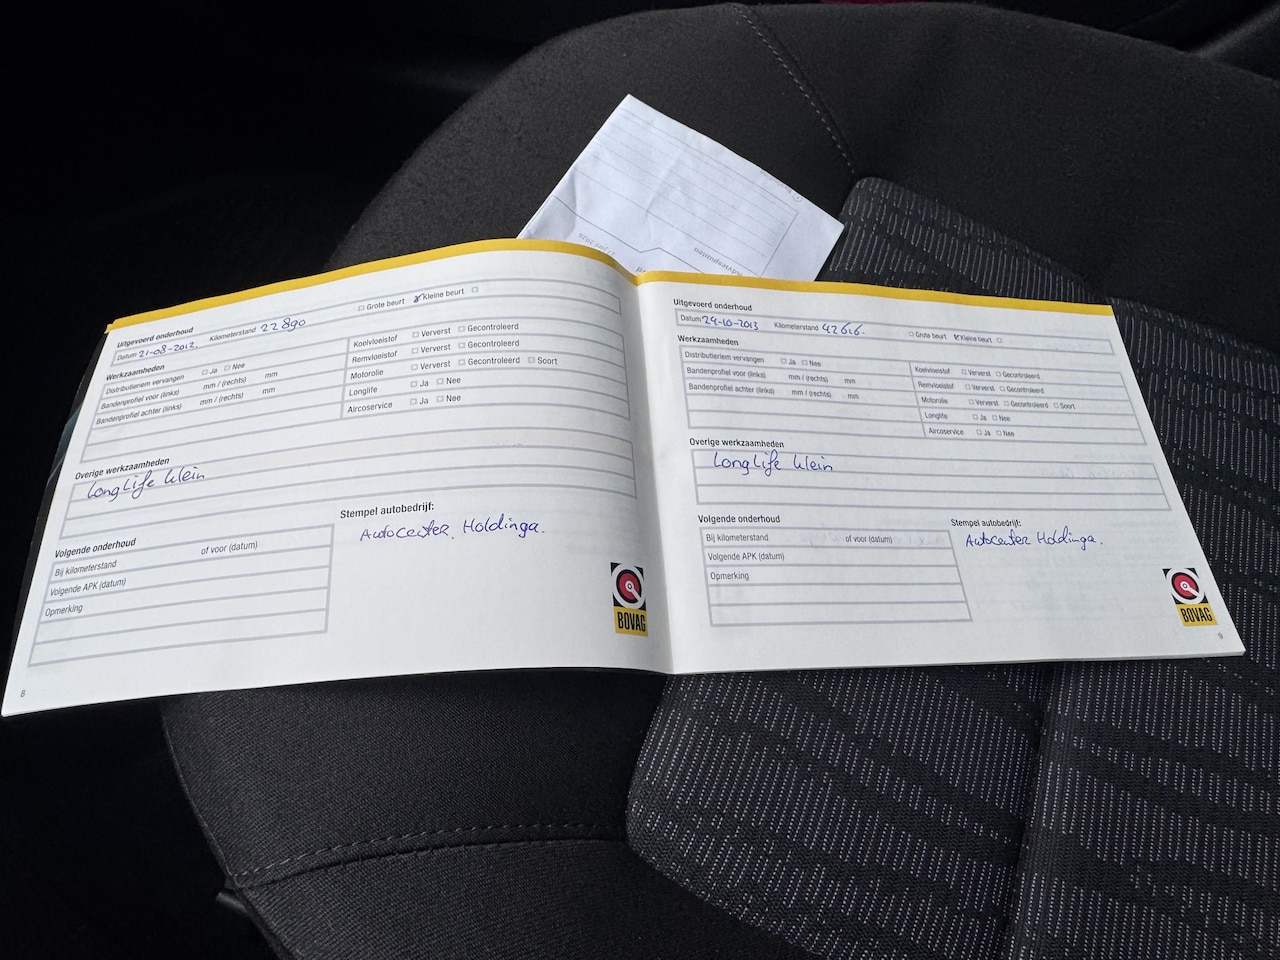 Uitgevoerd onderhoud
Datum 21-08-2012. Kilometerstand 22890 Grote beurt Kleine beurt
Werkzaamheden
Distributieriem vervangen Ja Nee
Bandenprofiel voor (links) mm / (rechts) mm
Bandenprofiel achter (links) mm / (rechts) mm
Koelvloeistof Ververst Gecontroleerd
Remvloeistof Ververst Gecontroleerd
Motorolie Ververst Gecontroleerd Soort
Longlife Ja Nee
Aircoservice Ja Nee
Overige werkzaamheden
Longlife klein
Volgende onderhoud
Bij kilometerstand of voor (datum)
Volgende APK (datum)
Opmerking
Stempel autobedrijf:
Autocenter Holdinga.
BOVAG
8
Uitgevoerd onderhoud
Datum 24-10-2013 Kilometerstand 42616. Grote beurt Kleine beurt
Werkzaamheden
Distributieriem vervangen Ja Nee
Bandenprofiel voor (links) mm / (rechts) mm
Bandenprofiel achter (links) mm / (rechts) mm
Koelvloeistof Ververst Gecontroleerd
Remvloeistof Ververst Gecontroleerd
Motorolie Ververst Gecontroleerd Soort
Longlife Ja Nee
Aircoservice Ja Nee
Overige werkzaamheden
Longlife klein
Volgende onderhoud
Bij kilometerstand of voor (datum)
Volgende APK (datum)
Opmerking
Stempel autobedrijf:
Autocenter Holdinga.
BOVAG
9